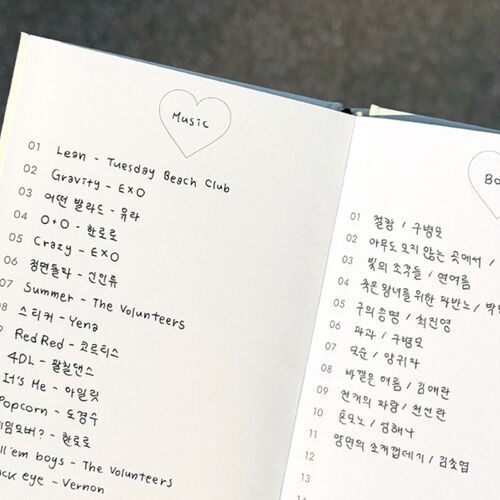 Music
01 Lean - Tuesday Beach Club
02 Gravity - EXO
03 어떤 발라드 - 유라
04 0+0 - 한로로
05 Crazy - EXO
06 정면돌파 - 신인류
07 Summer - The Volunteers
08 스티커 - Yena
Red Red - 코르티스
4DL - 팔칠댄스
It's Me - 아일릿
Popcorn - 도경수
게임오버? - 한로로
boys - The Volunteers
eye - Vernon
Bo
01 절창 / 구병모
02 아무도 오지 않는 곳에서 /
03 빛의 조각들 / 연여름
04 죽은 왕녀를 위한 파반느 / 박민
05 구의 증명 / 최진영
06 파과 / 구병모
07 모순 / 양귀자
08 바깥은 여름 / 김애란
09 천 개의 파랑 / 천선란
10 혼모노 / 성해나
11 양면의 조개껍데기 / 김초엽
12
13